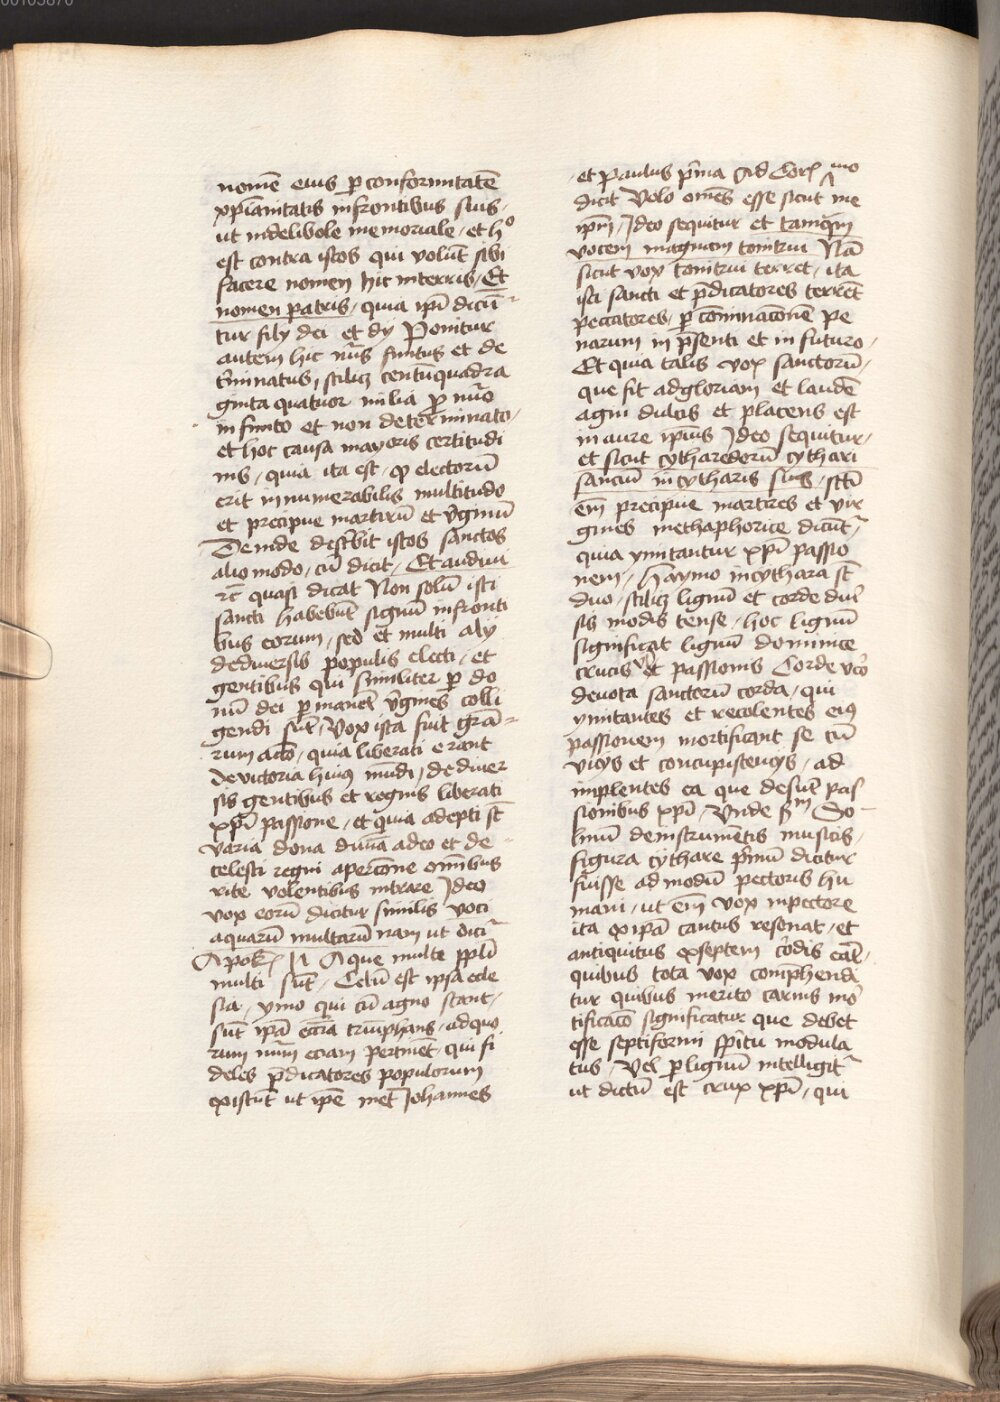 00103870
nomē eius p̲ conformitatē
xp̄ianitatis in frontibus suis,
ut indelibole memoriale, et hͦ
est contra istos qui volūt sibi
facere nomen hic in terris, Et
nomen patris, quia ip̄i dicū-
tur filij dei et dij Ponitur
autem hic nūs finitus et de
t̄minatus, scilicꝫ centūquadra
ginta quatuor milia p̲ nūo
infinito et non determinato,
et hoc causa mayoris certitudi
nis, quia ita est, ꝙ electorū
erit innumerabilis multitudo
et precipue martirū et v̄ginū
Deinde desc̄bit istos sanctos
alio modo, cū dicit, Et audiui
⁊c̄ quasi dicat Non solū isti
sancti habebūt signū in fronti
bus eorum, sed et multi alij
de diuersis populis electi, et
gentibus qui similiter p̲ do
nū dei p̲manēt v̄gines colli
gendi sūt, Vox ista fuit gr̄a-
rum actō, quia liberati erant
de victoria huiꝰ mūdi, de diuer
sis gentibus et regnis liberati
xp̄i passione, et quia adepti sūt
varia dona diuīa a deo et de
celesti regni apercōne om̄ibus
rite volentibus intrare Ideo
vox eorū dicitur similis voci
aquarū multarū nam ut dicit̄
Apok̄ Aque multe pp̄li
multi sūt, Celū est ipsa ecle
sia, ymo qui cū agno stant,
sūt ip̄a ecc̄ia triūphans, ad quo
rum nūm eciam pertinēt, qui fi
deles p̄dicatores populorum
existūt ut ip̄e met Johannes
et Paulus p̄ma ad Cor̄ mo
dicit Volo om̄es esse sicut me
ip̄m, Ideo sequitur et tamqm̄
vocem magnam tonitrui Nā
sicut vox tonitrui terret, ita
isti sancti et p̄dicatores terrēt
peccatores, p̲ cōminacōnē pe
narum in p̄senti et in futuro,
Et quia talis vox sanctorū,
que fit ad gloriam et laudē
agni dulcis et placens est
in aure ipīus Ideo sequitur,
et sicut cytharedorū cythari
sanciū in cytharis suis, sctī
em̄ precipue martires et vir
gines methaphorice dicūt̄
quia ymitantur xp̄i passio
nem, Haymo in cythara sūt
duo, scilicꝫ lignū et corde diū
sis modis tense, hoc lignū
significat lignū dominice
crucis et passionis Corde v̄o
deuota sanctorū corda, qui
ymitantes et recolentes eiꝰ
passionem mortificant se cū
vicijs et concupiscencijs, ad
implentes ea que desūt pas
sionibus xp̄i, Vnde
linū de instrumētis musicis,
figura cythare p̄mū dicitur
fuisse ad modū pectoris hu
mani, ut em̄ vox in pectore
ita ex ip̄a cantus resonat, et
antiquitus ex septem cōdis
quibus tota vox comp̄hendi
tur quibus merito carnis mō
tificacō significatur que debet
esse septiformi sp̄itu modula
tus, Vel p̲ lignū intelligit̄
ut dictū est crux xp̄i, qui